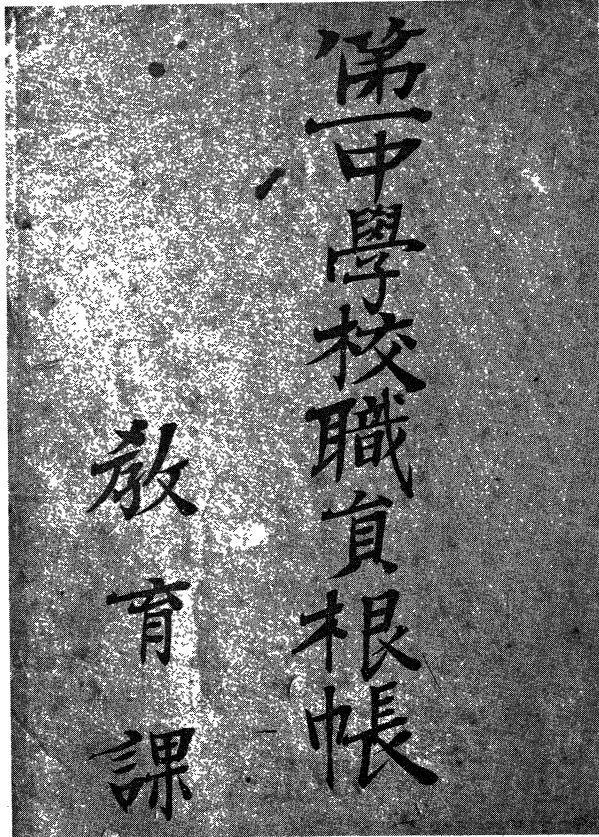 第一中學校職員根帳
教育課